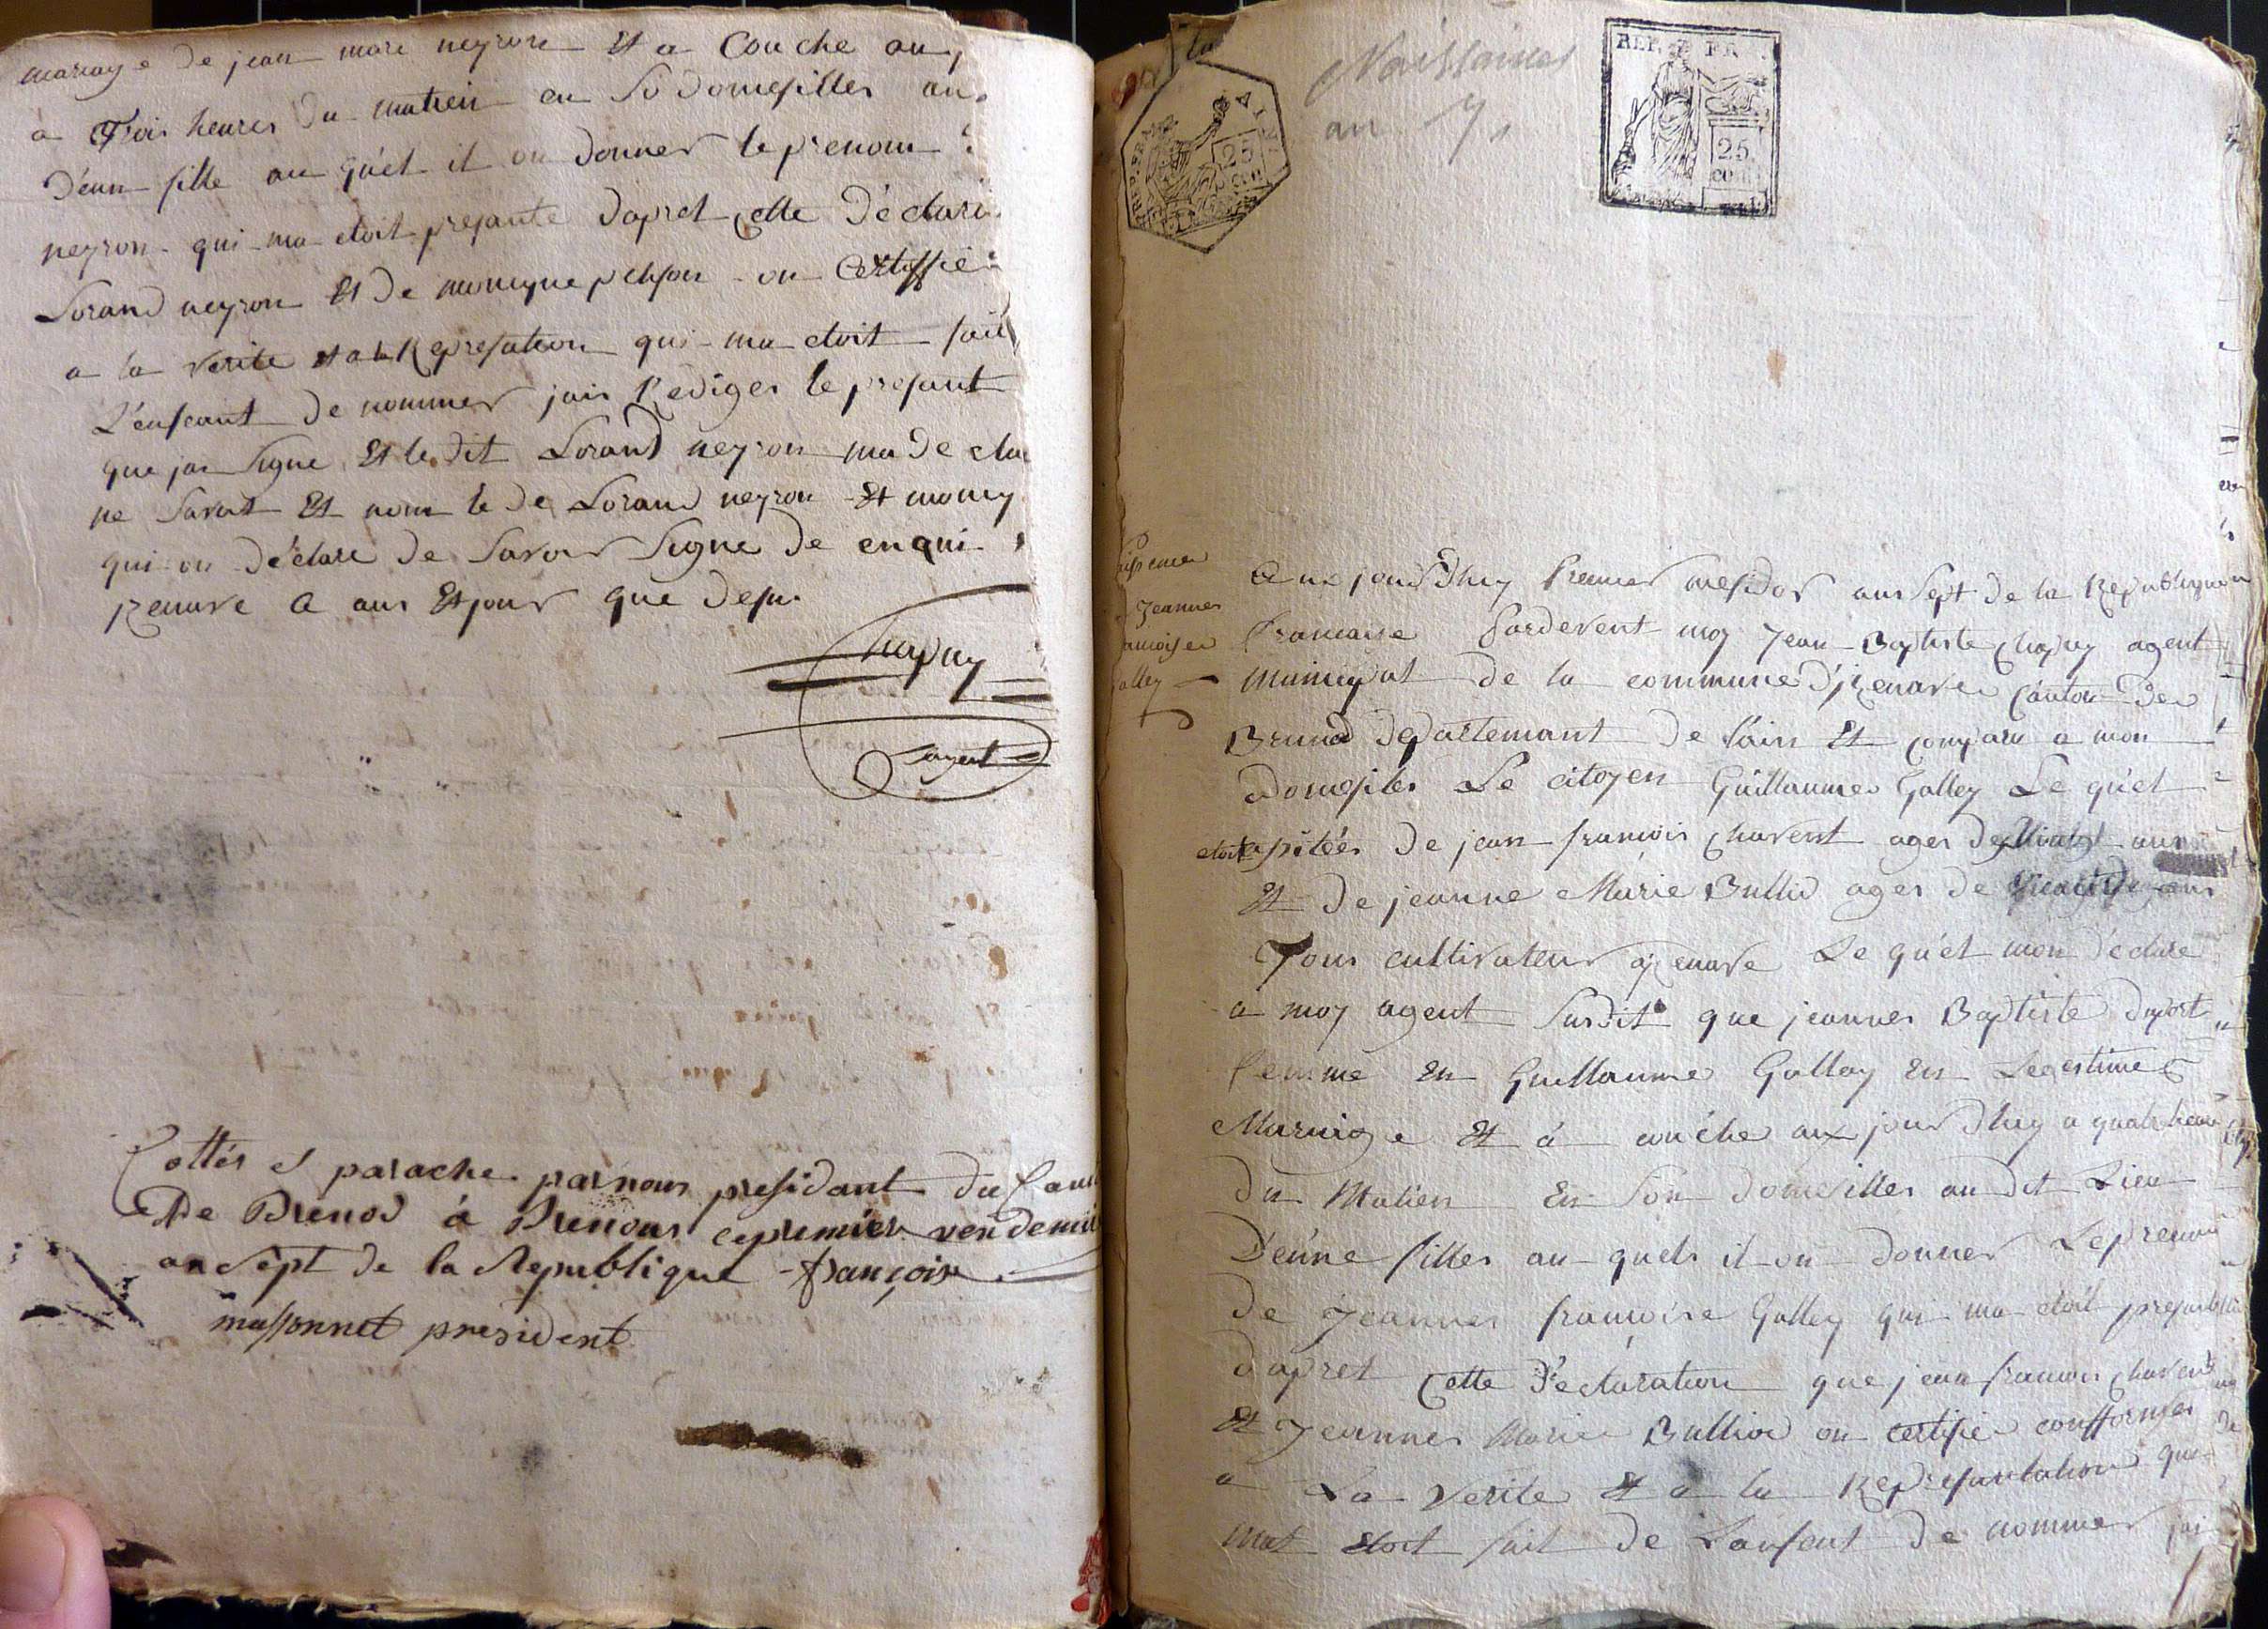 mariage de jean mare neyron Et a Couche au
a Trois heures du matien en So domesilles au
D'eun fille au quèt il on donner le prenom
neyron qui ma etoit presante dapret Cette Déclara
Lorand neyron Et De monique on Certiffie
a la verite et a la Represation qui ma etoit fait
L'enfeant De nommer jais Rediger le presant
que jai Signe Et le dit Lorand neyron ma De cla
ne Savoit Et nom le De Lorand neyron Et moniq
qui on Déclare De Savoir Signe De enqui
jzenuve a ans Et jour que Desu
Chapuy
agent
Cottés et parache par nous presidant du Can
De Brenod à Brenous ce premier vendemi
an Sept de la Republique françoise
massonnet president
Naissances
an 7
REP. FR.
25
REP. FRA
AIN
25
Jeanne
Galley
Aux jourDhuy Premier mesidor ans Sept De la Republique
francaise Pardevent moy Jean Baptiste Chapuy agent
Municipal De la commune D'jzenave Canton De
Brunod Departemant De l'ain Et compare a mon
Domesiles Le citoyen Guillaume Galley Le quèt
De jean francois Charvent ages De ans
Et De jeanne Marie Bullio ages De ans
Tous cultivateur a jzenave Le quèt mon Declare
a moy agent Surdit que jeanne Baptiste Duport
femme En Guillaume Galley En Legestime
Mariage Et à couche aux jour Dhuy a quatr heure
Du Matien En Son Domesilles au Dit Lieu
D'eune filles au quels il on Donner Le prenom
De Jeanne francoise Galley qui ma etoit presante
Dapret Cette Declaration que jean francois Charvent
Et Jeanne Marie Bulliod on certifie confforme
a La Verite Et a la Represantation que
mat Etoit fait De Lanfent De nommer jai